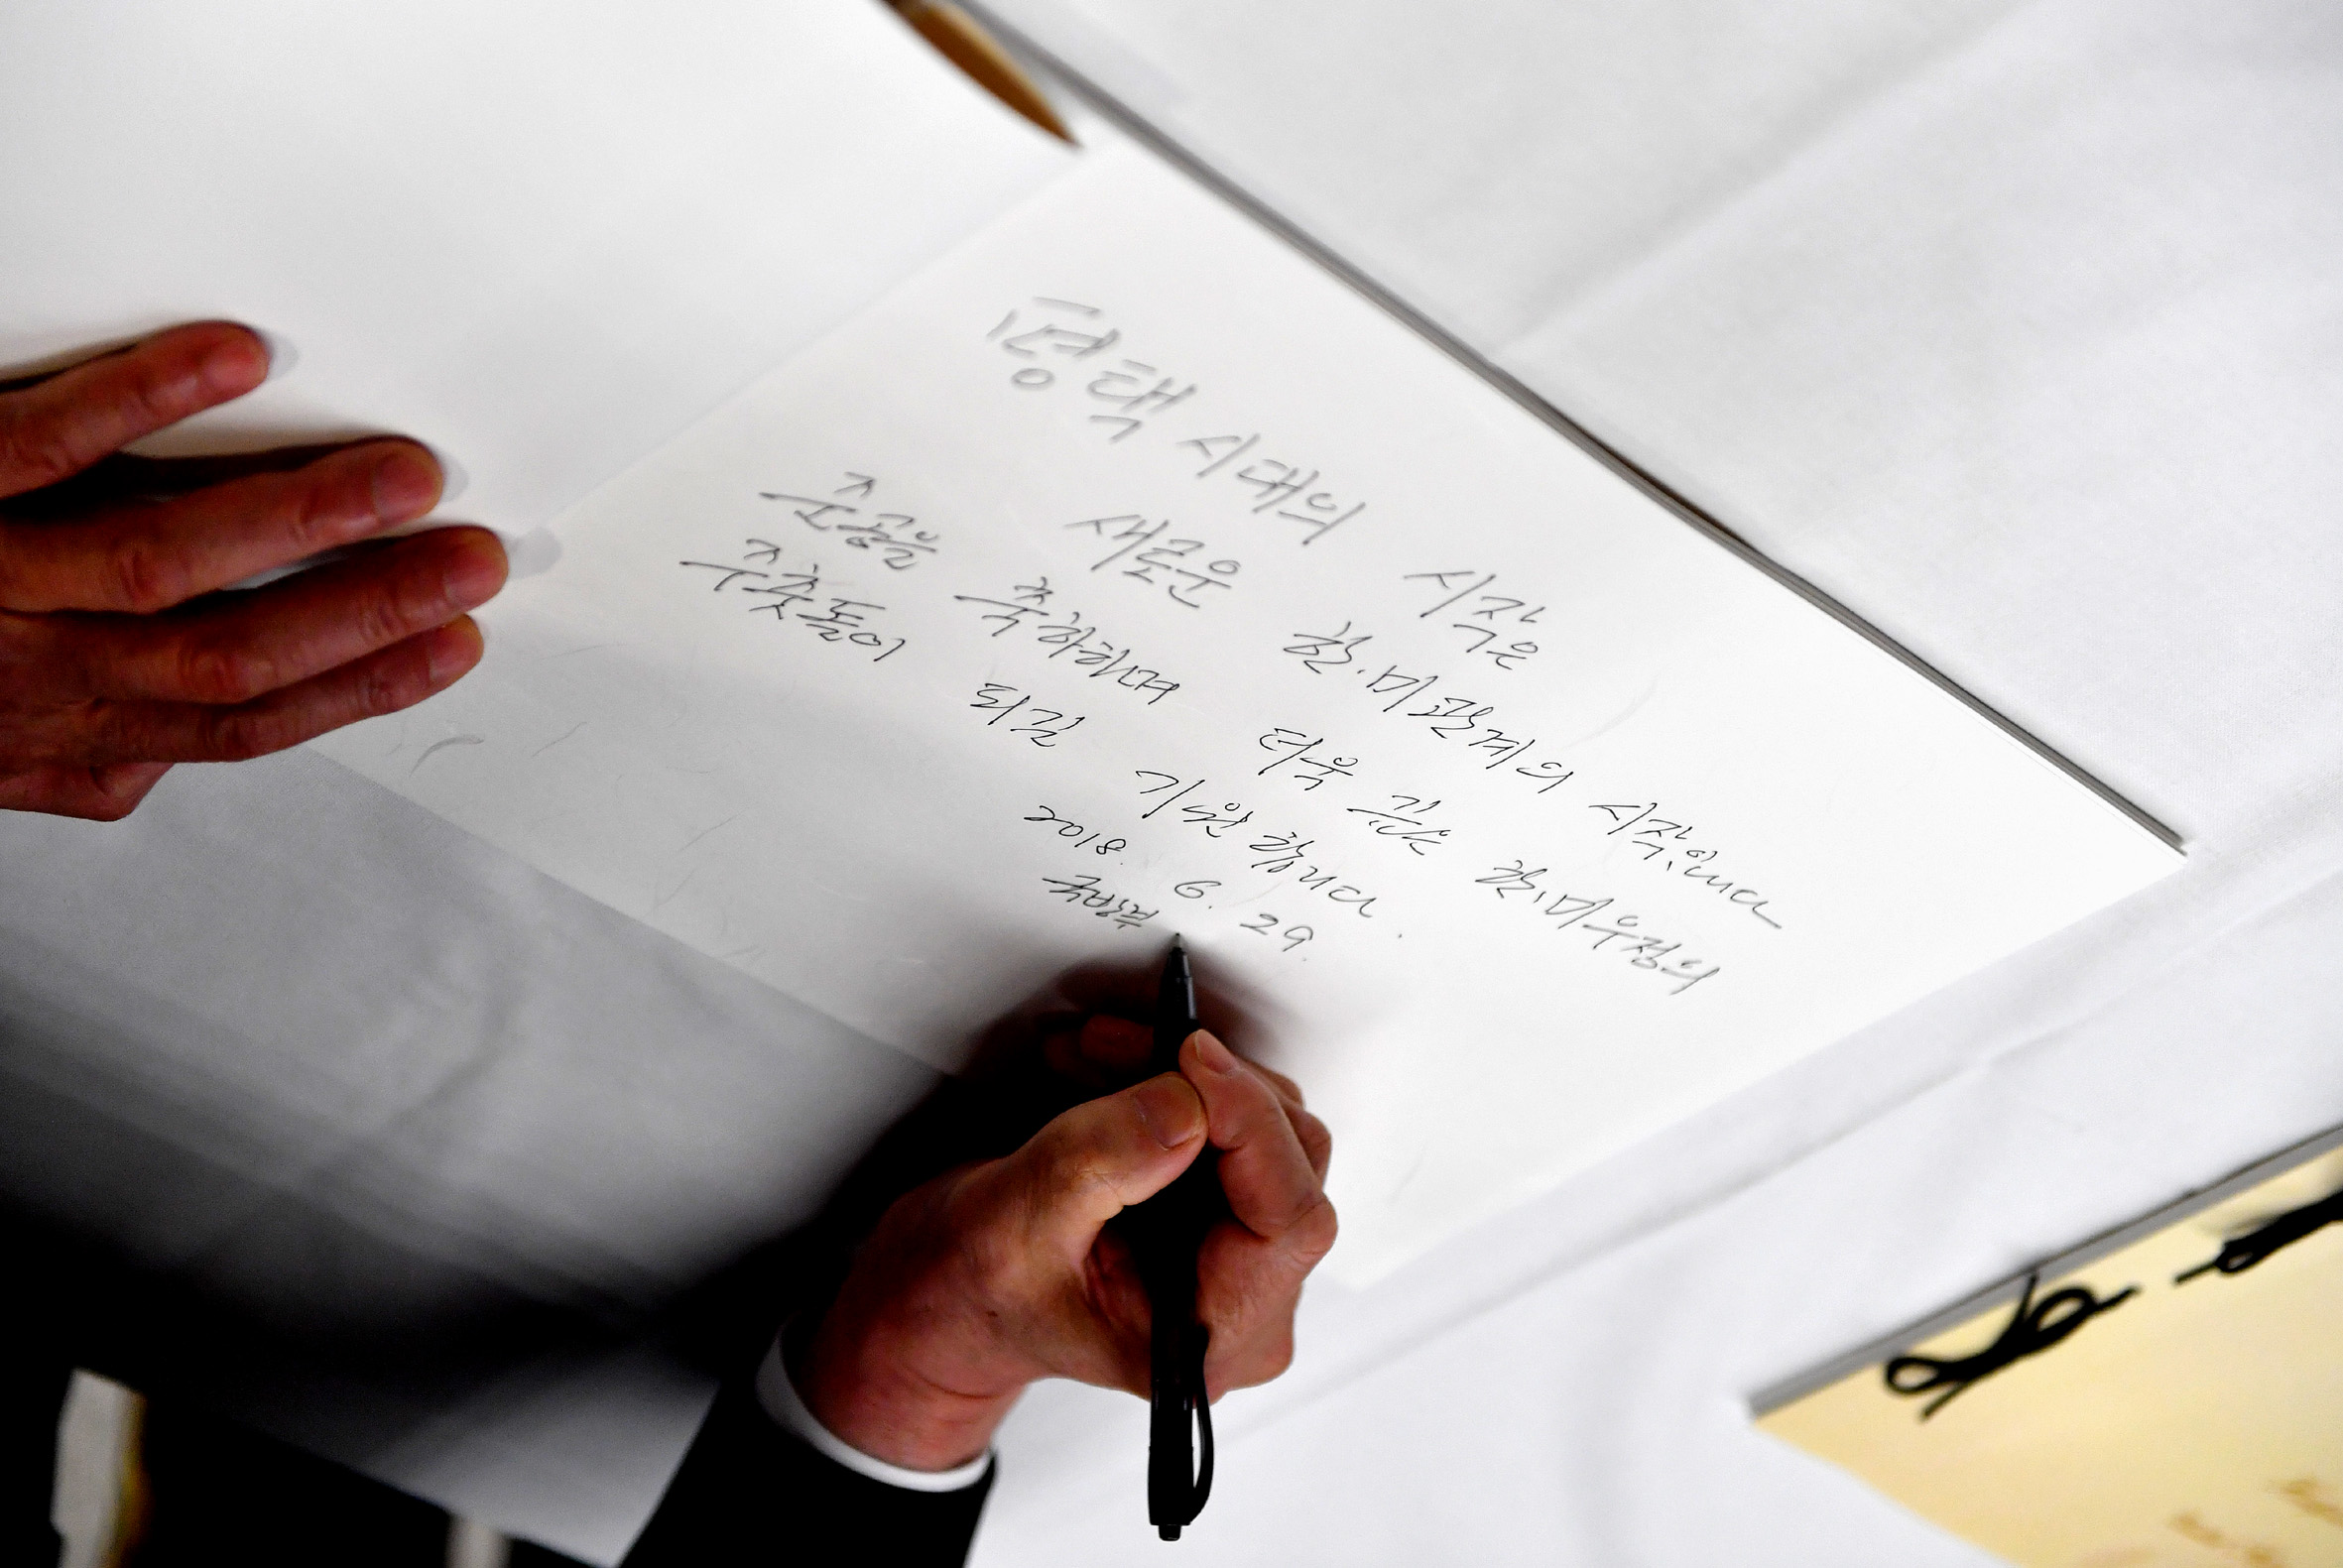 평택 시대의 시작은
새로운 한.미관계의 시작입니다
준공을 축하하며 더욱 깊은 한.미우정의
주춧돌이 되길 기원합니다.
2018. 6. 29.